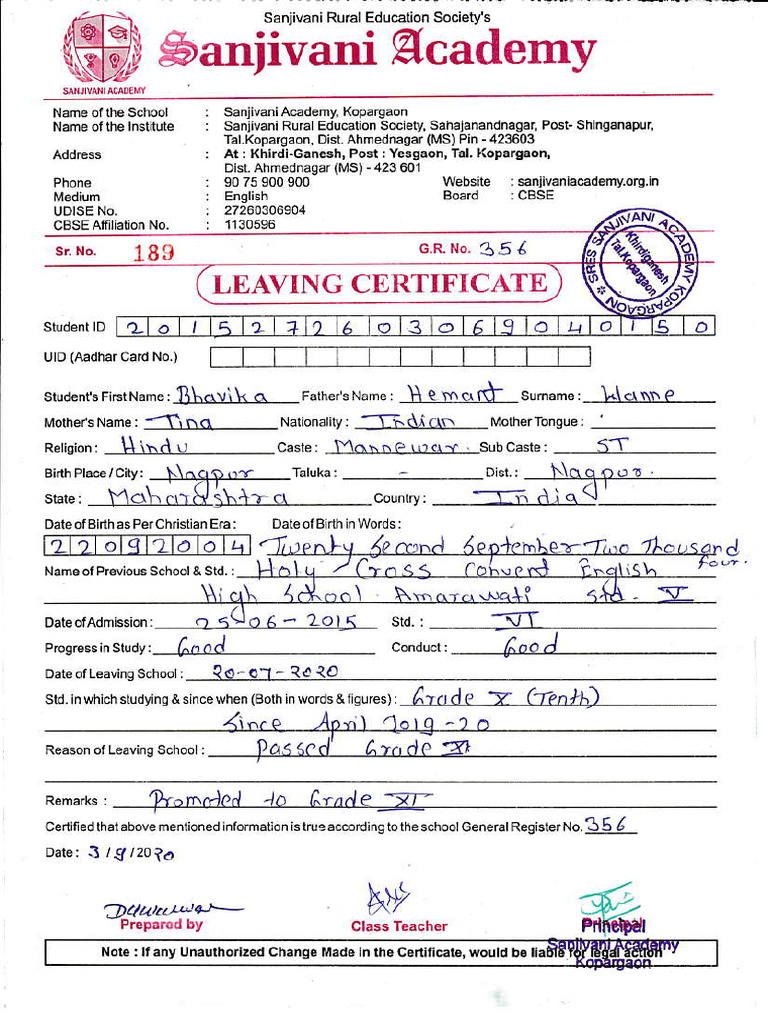 Sanjivani Rural Education Society's
Sanjivani Academy
SANJIVANI ACADEMY
Name of the School : Sanjivani Academy, Kopargaon
Name of the Institute : Sanjivani Rural Education Society, Sahajanandnagar, Post- Shinganapur,
Tal.Kopargaon, Dist. Ahmednagar (MS) Pin - 423603
Address : At : Khirdi-Ganesh, Post : Yesgaon, Tal. Kopargaon,
Dist. Ahmednagar (MS) - 423 601
Phone : 90 75 900 900 Website : sanjivaniacademy.org.in
Medium : English Board : CBSE
UDISE No. : 27260306904
CBSE Affiliation No. : 1130596
Sr. No. 189 G.R. No. 356
SRES SANJIVANI ACADEMY KOPARGAON
Khirdiganesh
Tal.Kopargaon
LEAVING CERTIFICATE
Student ID 2015272603069040150
UID (Aadhar Card No.)
Student's First Name : Bhavika Father's Name : Hemant Surname : Wanne
Mother's Name : Tina Nationality : Indian Mother Tongue :
Religion : Hindu Caste : Mannewar. Sub Caste : ST
Birth Place / City : Nagpur Taluka : - Dist. : Nagpur.
State : Maharashtra Country : India
Date of Birth as Per Christian Era : Date of Birth in Words :
22092004 Twenty Second September Two Thousand
four.
Name of Previous School & Std. : Holy Cross Convent English
High School Amarawati Std. V
Date of Admission : 25-06-2015 Std. : VI
Progress in Study : Good Conduct : Good
Date of Leaving School : 20-07-2020
Std. in which studying & since when (Both in words & figures) : Grade X (Tenth)
Since April 2019-20
Reason of Leaving School : Passed Grade
Remarks : Promoted to Grade XI
Certified that above mentioned information is true according to the school General Register No. 356
Date : 3/9/2020
Prepared by Class Teacher Principal
Principal
Sanjivani Academy
Kopargaon
Note : If any Unauthorized Change Made in the Certificate, would be liable for legal action